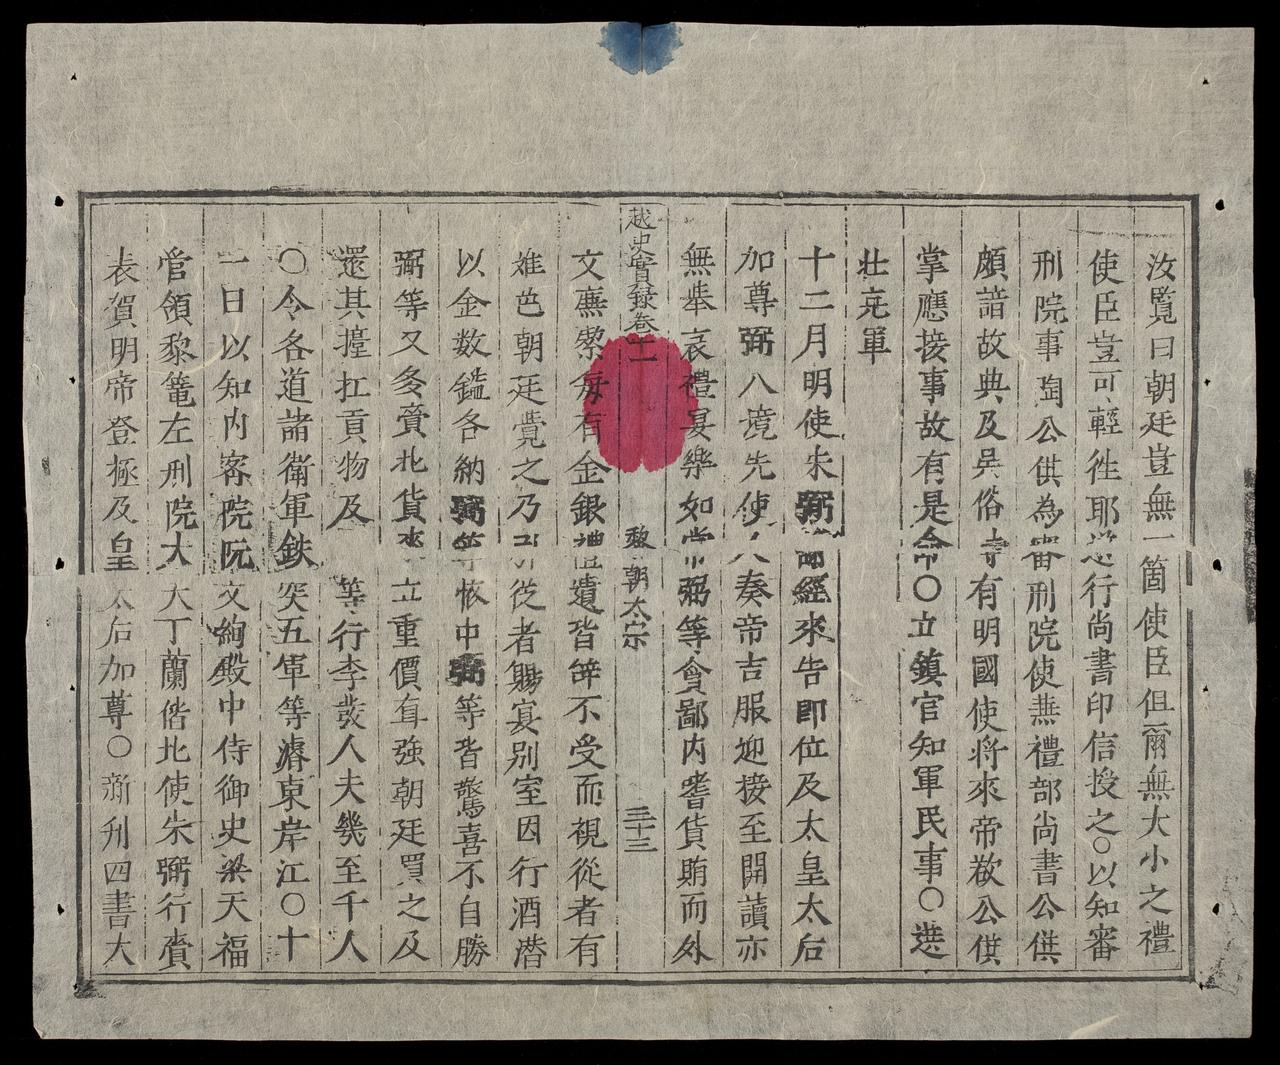 汝覧曰朝廷豈無一箇使臣但爾無大小之禮
使臣豈可輕徃耶遂行尚書印信授之○以知審
刑院事陶公供為審刑院使兼禮部尚書公供
頗諳故典及吳俗時有明國使将來帝欲公供
掌應接事故有是命○立鎮官知軍民事○選
壮充軍
十二月明使朱弼 經來告即位及太皇太后
加尊弼八境先使人奏帝吉服迎接至開讀亦
無舉哀禮宴樂如常弼等貪鄙内嗜貨賄而外
越史實録卷十一 黎朝太宗 三十三
文廉潔每有金銀禮遺皆辞不受而視従者有
难色朝廷覺之乃引従者賜宴别室因行酒潛
以金数鎰各納弼等懐中弼等皆驚喜不自勝
弼等又多賫北貨來立重價㧒強朝廷買之及
還其擡扛貢物及 等行李發人夫幾至千人
○令各道諸衛軍鉄突五軍等濬東岸江○十
一日以知内客院阮文絢殿中侍御史梁天福
管領黎篭左刑院大夫丁蘭偕北使朱弼行賫
表賀明帝登極及皇太后加尊○新刋四書大